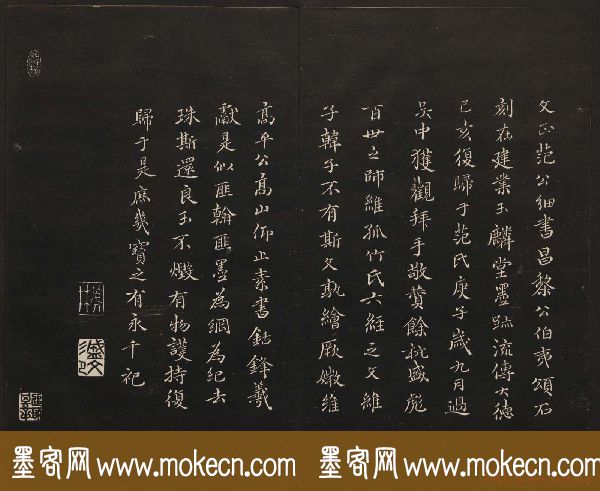 文正范公細書昌黎公伯夷頌石
刻在建業玉麟堂墨跡流傳大德
己亥復歸于范氏庚子歲九月過
吳中獲觀拜手敬贊餘杭盛彪
百世之師維孤竹氏六經之文維
子韓子不有斯文孰繪厥媺維
高平公高山仰止素書銛鋒羲
獻是似匪翰匪墨為綱為紀去
珠斯還良玉不燬有物護持復
歸于是庶幾寶之有永千祀
盛彪
墨客网 www.mokecn.com 墨客网 www.mokecn.com